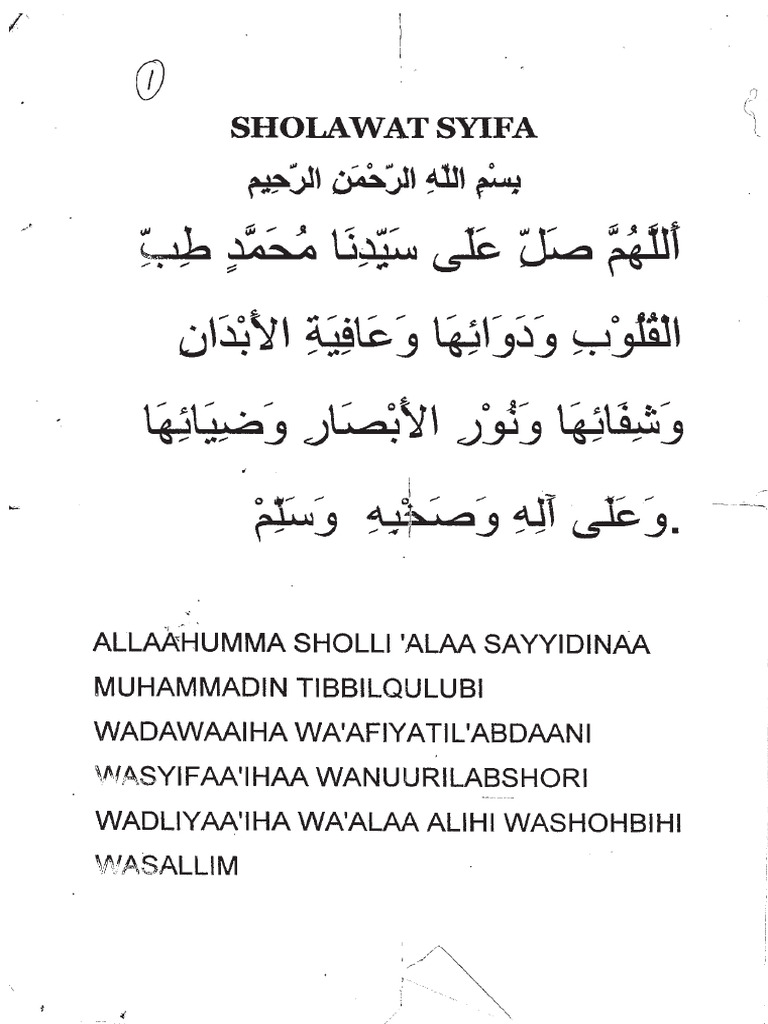 1
SHOLAWAT SYIFA
بِسْمِ اللَّهِ الرَّحْمَنِ الرَّحِيم
أَللَّهُمَّ صَلِّ عَلَى سَيِّدِنَا مُحَمَّدٍ طِبِّ
الْقُلُوْبِ وَدَوَائِهَا وَعَافِيَةِ الأَبْدَانِ
وَشِفَائِهَا وَنُوْرِ الأَبْصَارِ وَضِيَائِهَا
وَعَلَى آلِهِ وَصَحْبِهِ وَسَلِّمْ.
ALLAAHUMMA SHOLLI 'ALAA SAYYIDINAA
MUHAMMADIN TIBBILQULUBI
WADAWAAIHA WA'AFIYATIL'ABDAANI
WASYIFAA'IHAA WANUURILABSHORI
WADLIYAA'IHA WA'ALAA ALIHI WASHOHBIHI
WASALLIM